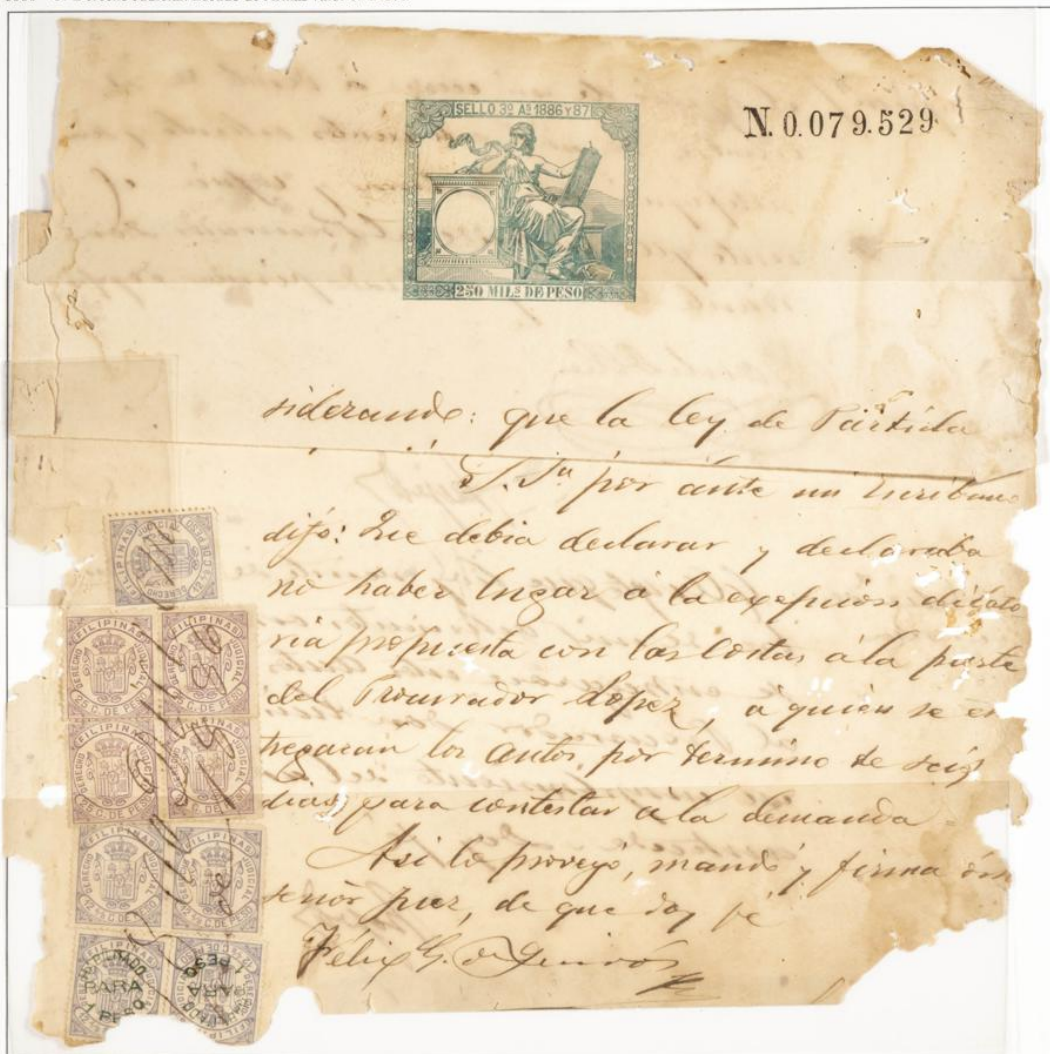 SELLO 3º Aº 1886 Y 87
N. 0.079.529
250 MILS DE PESO
siderando: que la ley de Partida
S. Sª por ante mi Escribano
dijo: Que debia declarar y declaraba
no haber lugar á la exepcion dilato
ria propuesta con las costas á la parte
del Procurador Lopez, á quien se en
tregaran los autos por termino de seis
dias para contestar a la demanda
Asi lo proveyó, mandó y firma
señor juez, de que doy fé
Félix G. de Quirós
FILIPINAS DERECHO JUDICIAL
FILIPINAS DERECHO JUDICIAL C. DE PESO
FILIPINAS DERECHO JUDICIAL C. DE PESO
FILIPINAS DERECHO JUDICIAL 12 4/8 C. DE PESO
FILIPINAS HABILITADO PARA 1 PESO
HABILITADO PARA 1 PESO